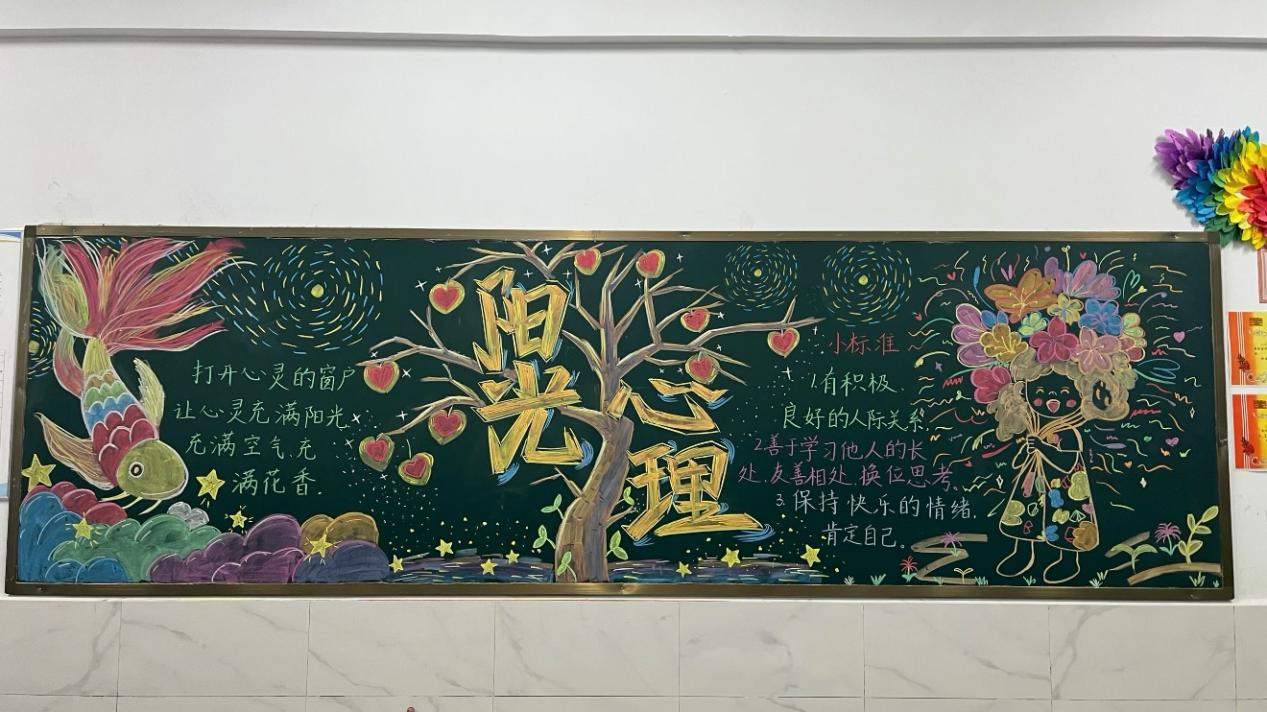 打开心灵的窗户
让心灵充满阳光
充满空气,充
满花香.
阳光
心理
小标准
1.有积极
良好的人际关系
2.善于学习他人的长
处.友善相处.换位思考.
3.保持快乐的情绪.
肯定自己.